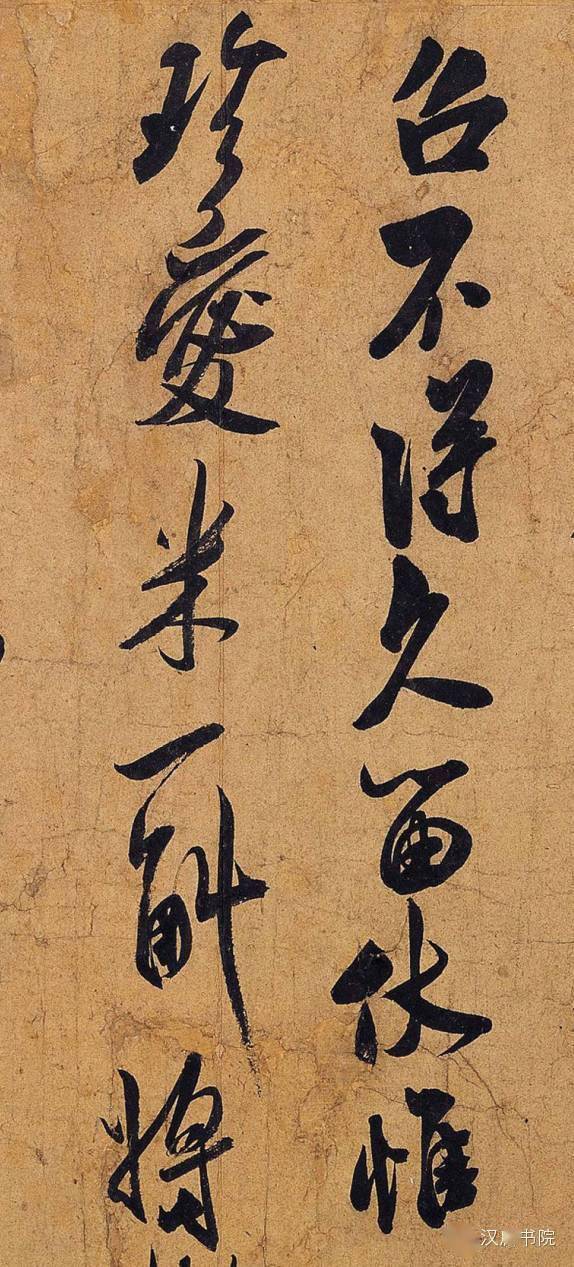 台不得久留伏惟
珍愛米一斛將
汉 书院